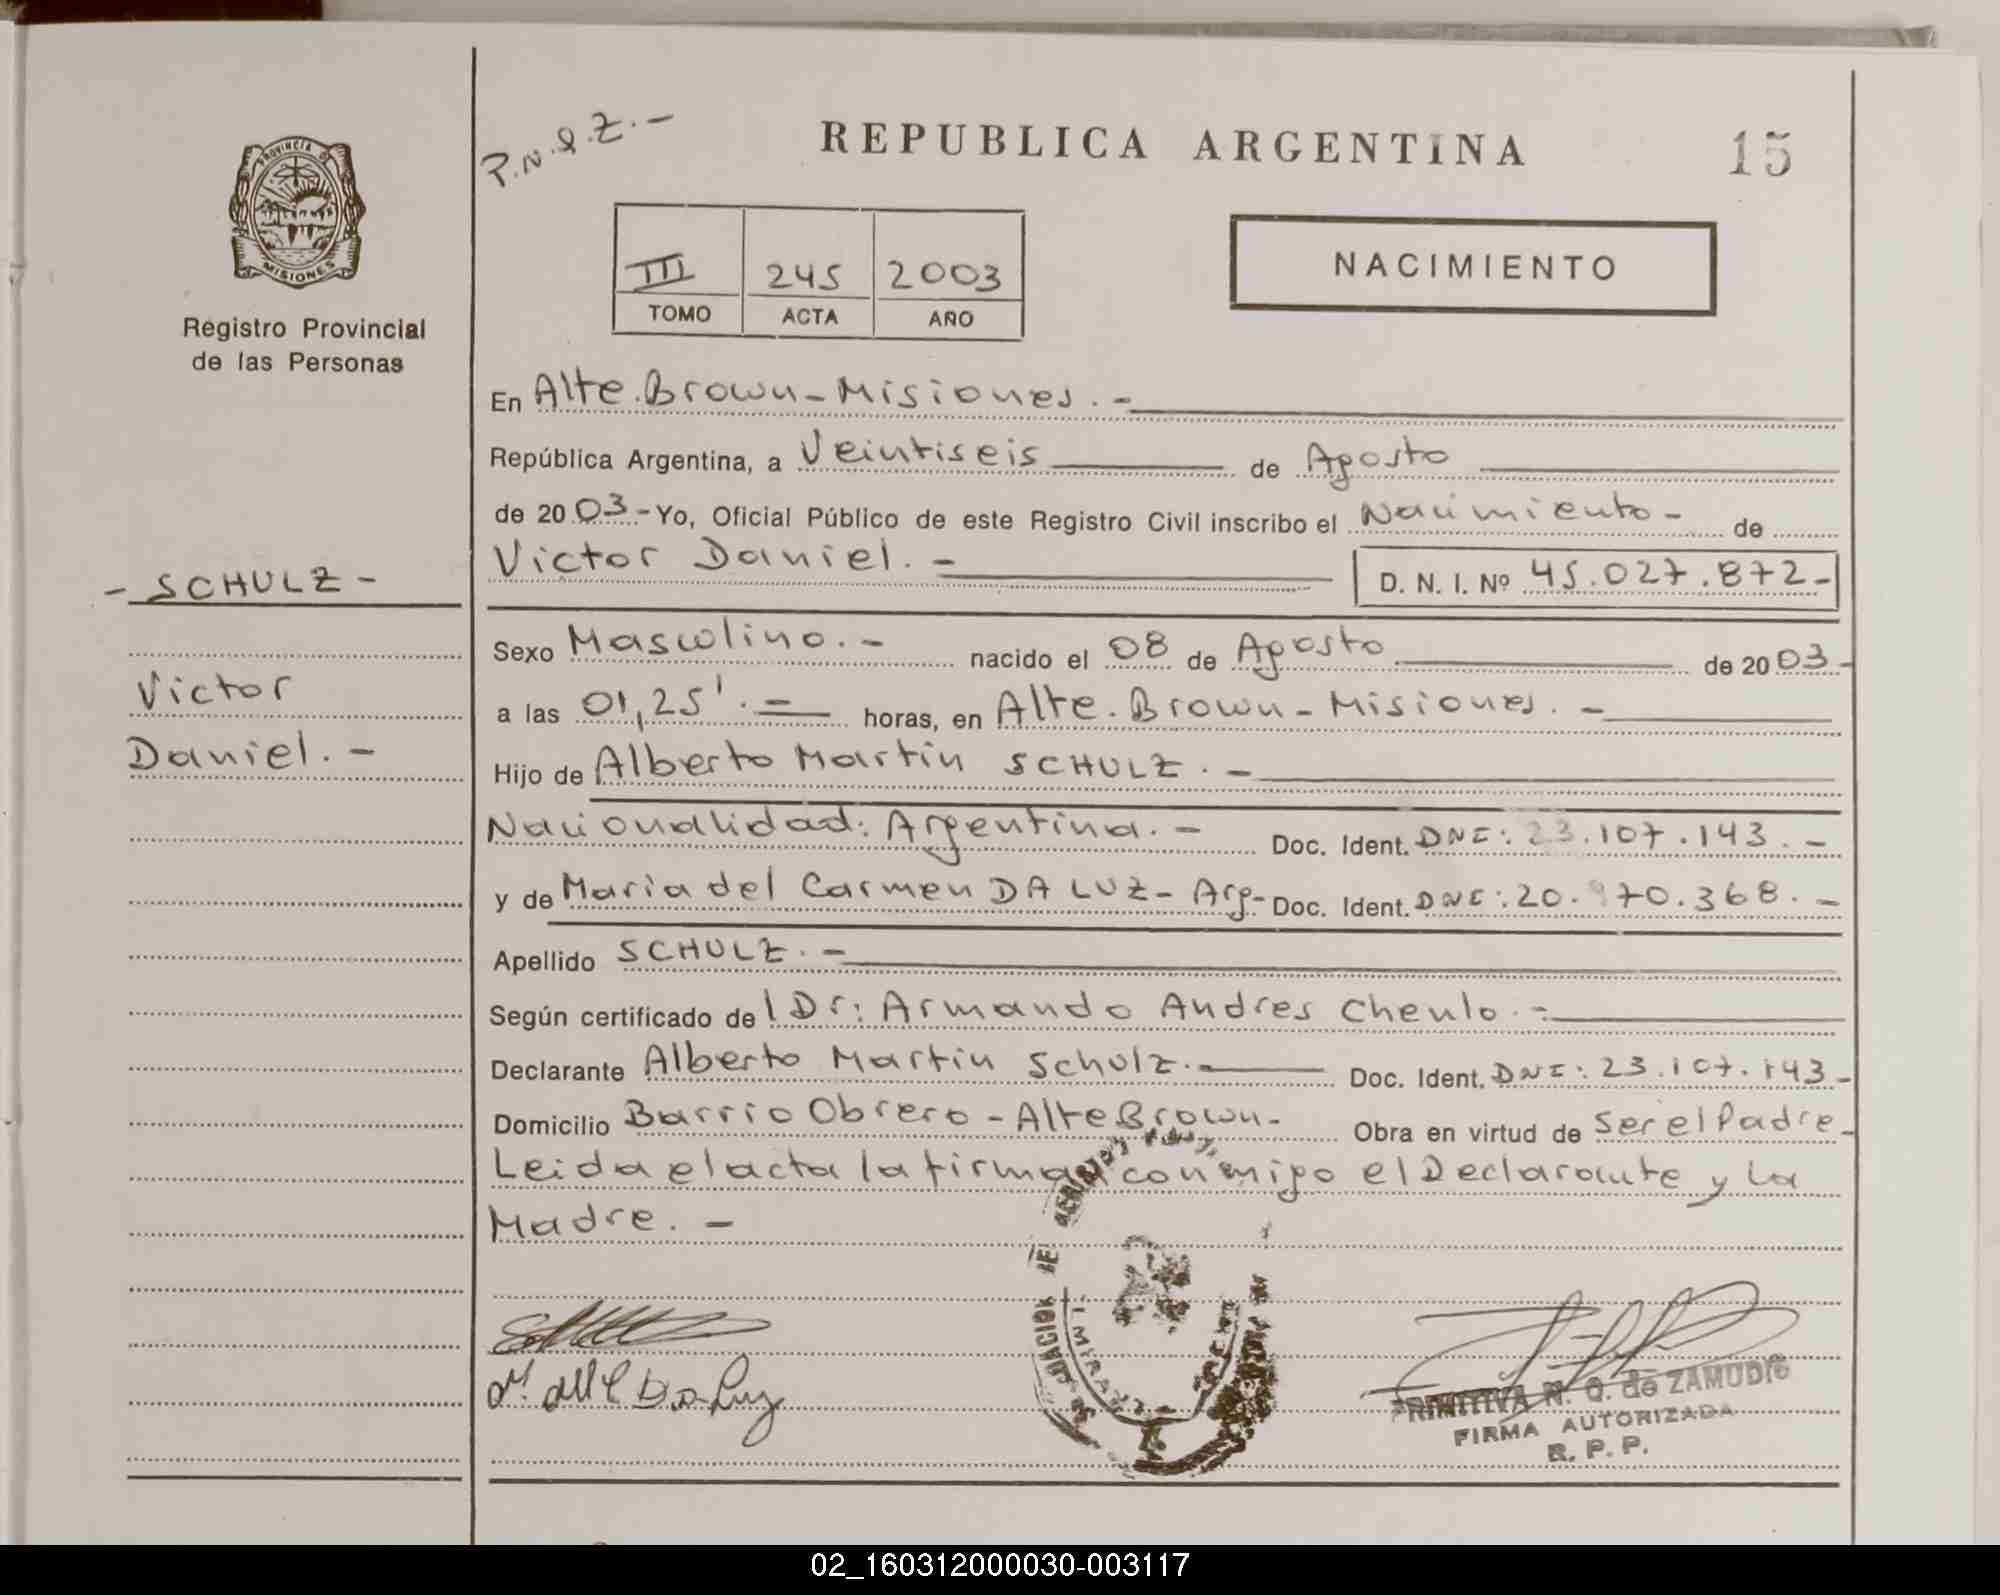 PROVINCIA DE
MISIONES
Registro Provincial
de las Personas
- SCHULZ -
Victor
Daniel. -
P.N.Q.Z. -
REPUBLICA ARGENTINA
15
III 245 2003
TOMO ACTA AÑO
NACIMIENTO
En Alte. Brown - Misiones. -
República Argentina, a Veintiseis de Agosto
de 2003 - Yo, Oficial Público de este Registro Civil inscribo el Nacimiento - de
Victor Daniel. - D. N. I. Nº 45.027.872 -
Sexo Masculino. - nacido el 08 de Agosto de 2003 -
a las 01,25'. = horas, en Alte. Brown - Misiones. -
Hijo de Alberto Martin SCHULZ. -
Nacionalidad: Argentina. - Doc. Ident. DNI: 23.107.143. -
y de Maria del Carmen DA LUZ - Arg - Doc. Ident. DNI: 20.970.368. -
Apellido SCHULZ. -
Según certificado del Dr: Armando Andres Chenlo. -
Declarante Alberto Martin Schulz. Doc. Ident. DNI: 23.107.143 -
Domicilio Barrio Obrero - Alte Brown - Obra en virtud de Ser el Padre -
Leida el acta la firman conmigo el Declarante y la
Madre. -
PRIMITIVA N. Q. de ZAMUDIO
FIRMA AUTORIZADA
R. P. P.
02_160312000030-003117